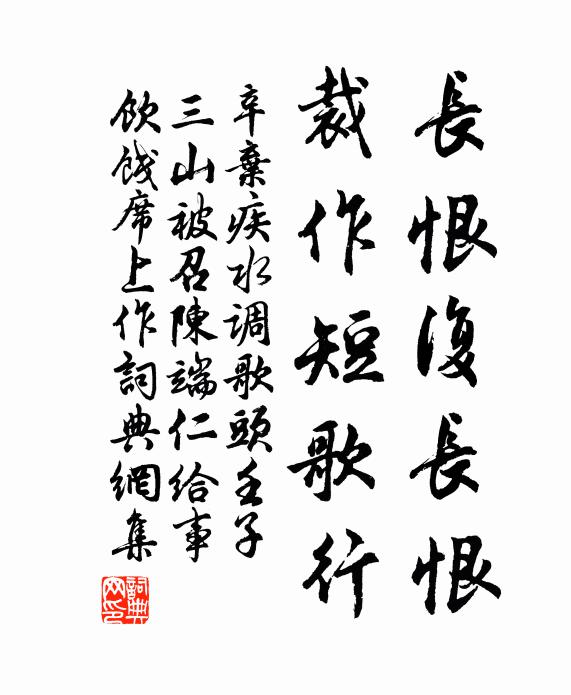 長恨復長恨
裁作短歌行
辛棄疾水調歌頭壬子
三山被召陳端仁給事
飲餞席上作詞典網集
詞典網印